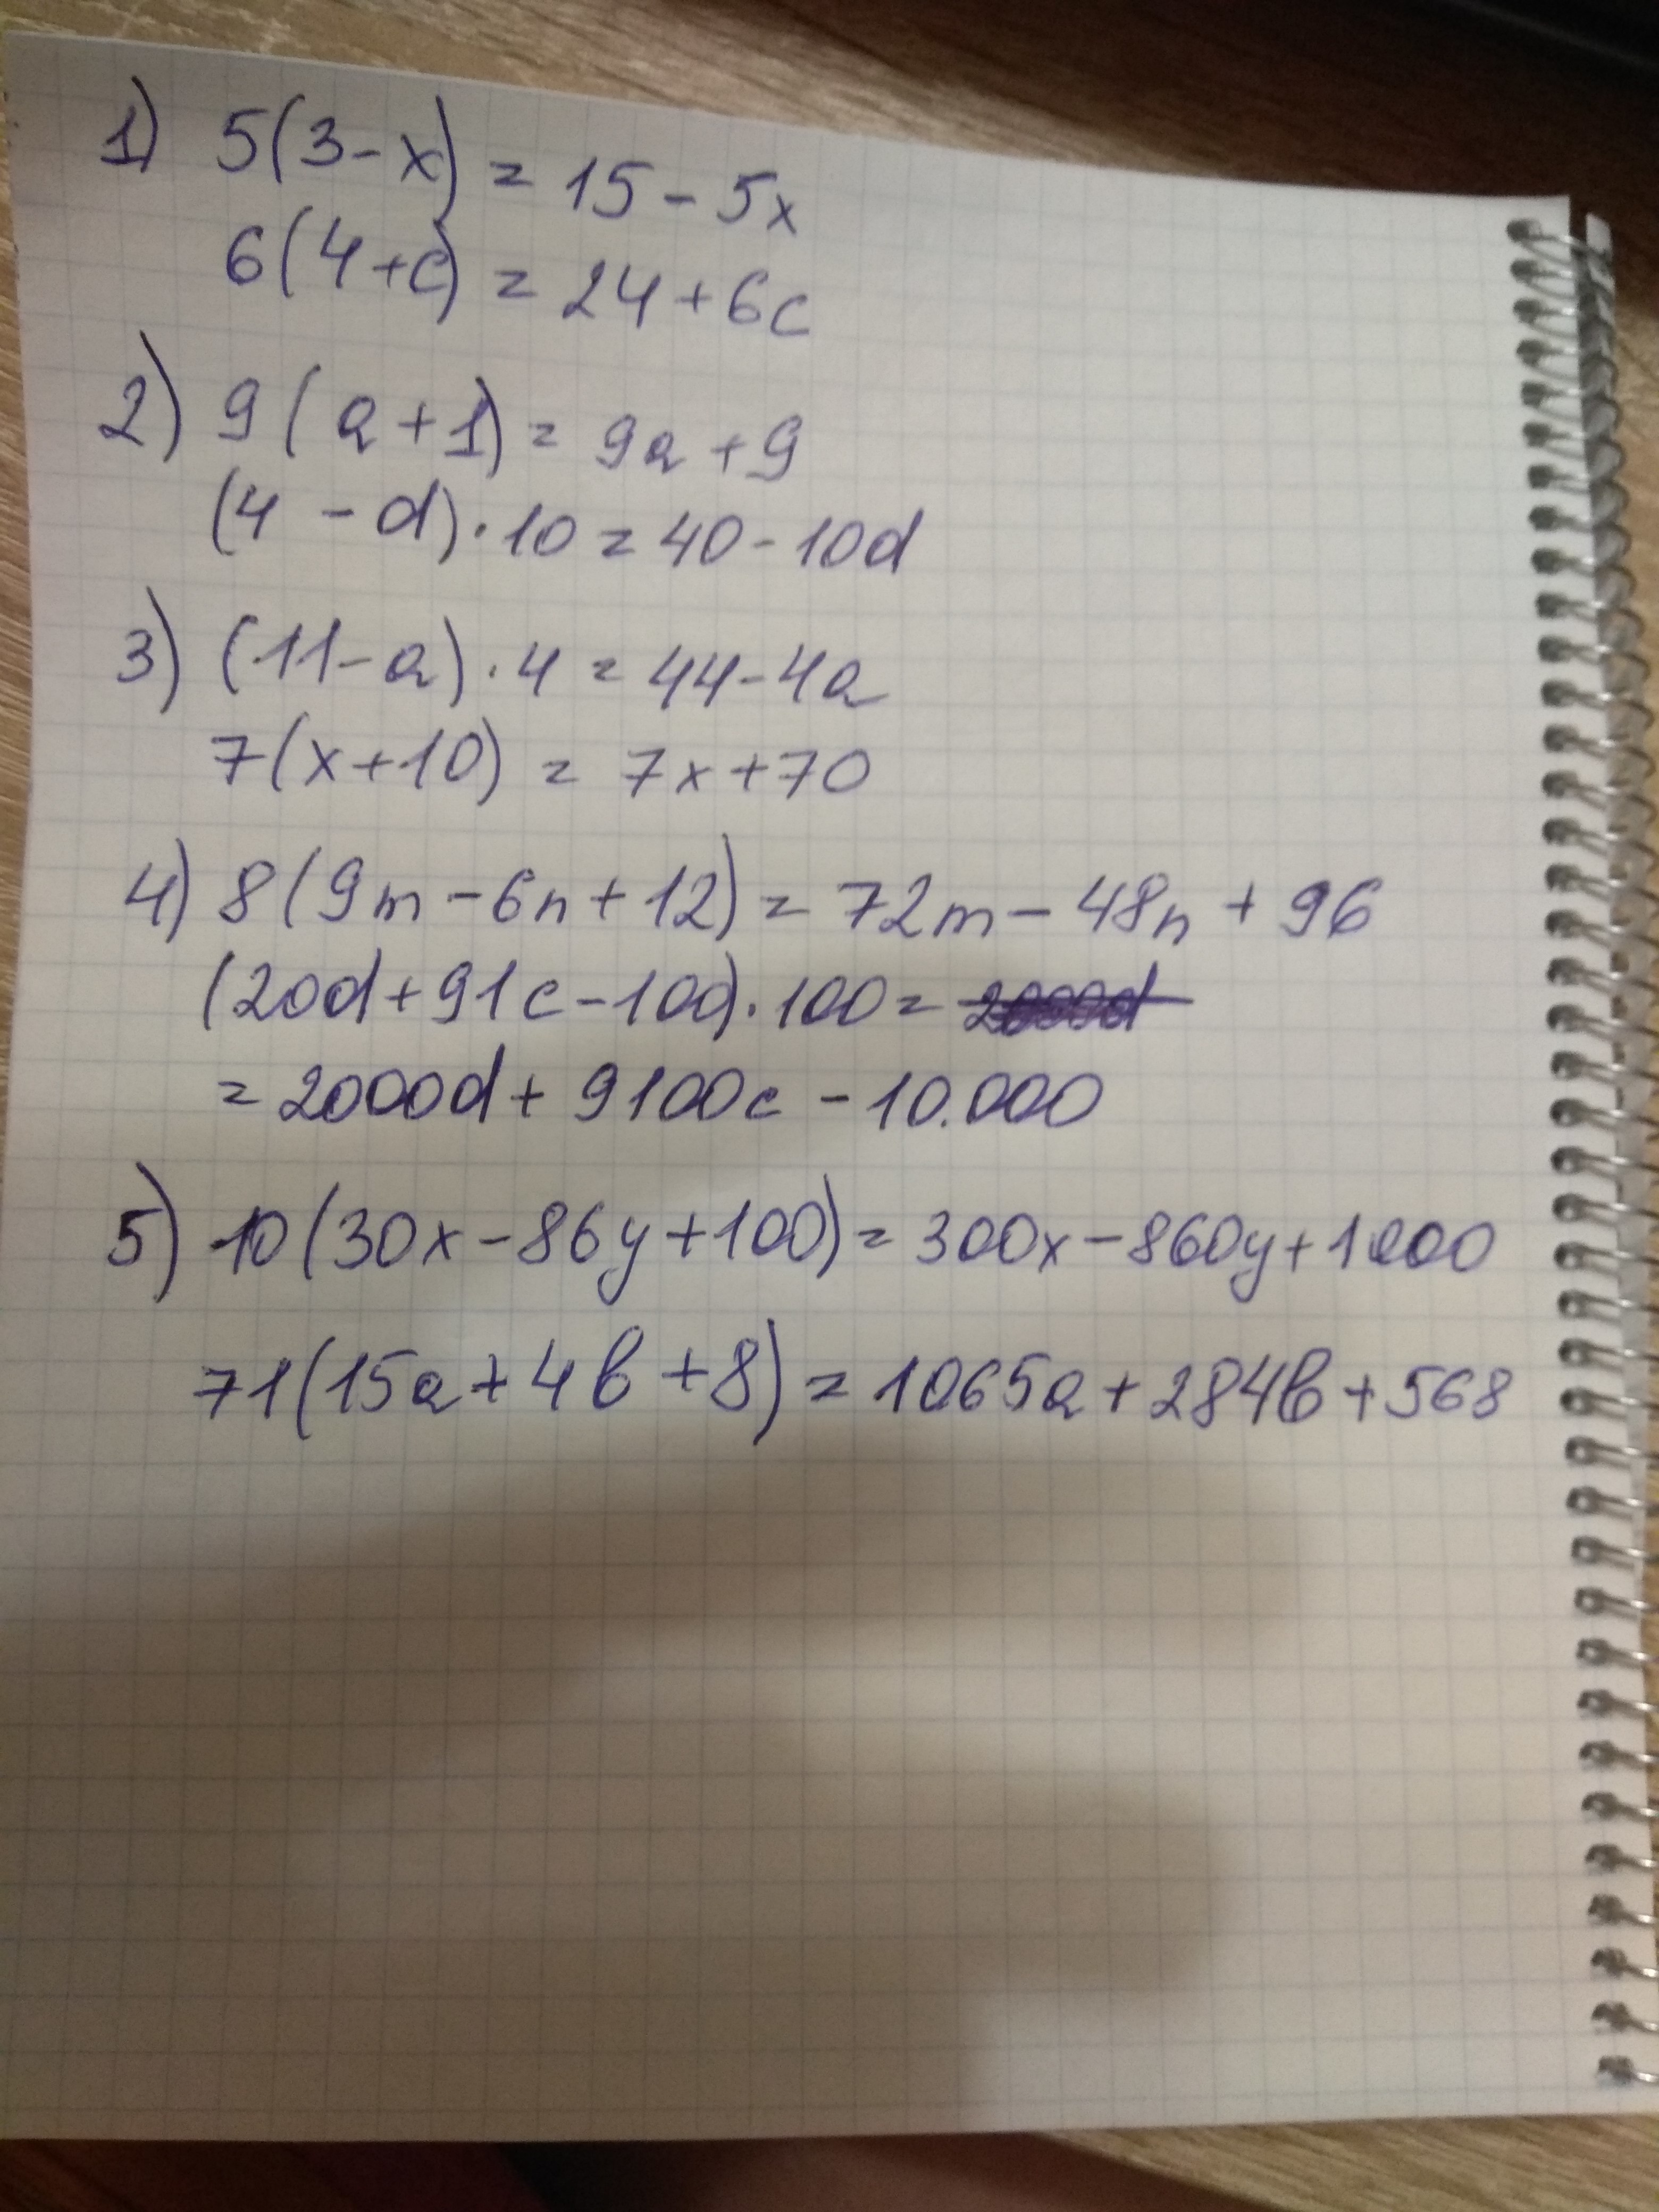 1) 5(3-x) = 15-5x
6(4+c) = 24+6c
2) 9(a+1) = 9a+9
(4-d)·10=40-10d
3) (11-a)·4=44-4a
7(x+10) = 7x+70
4) 8(9m-6n+12) = 72m-48n+96
(20d+91c-100)·100= 2000d
= 2000d+9100c-10.000
5) 10(30x-86y+100)=300x-860y+1000
71(15a+4b+8)=1065a+284b+568